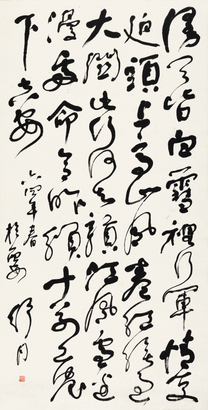 漫天皆白雪裡行軍情更
迫頭上高山風卷紅旗過
大關此行何去贛江風雪迷
漫處命令昨頒十萬工農
下吉安
六四年春
於西安
舒同